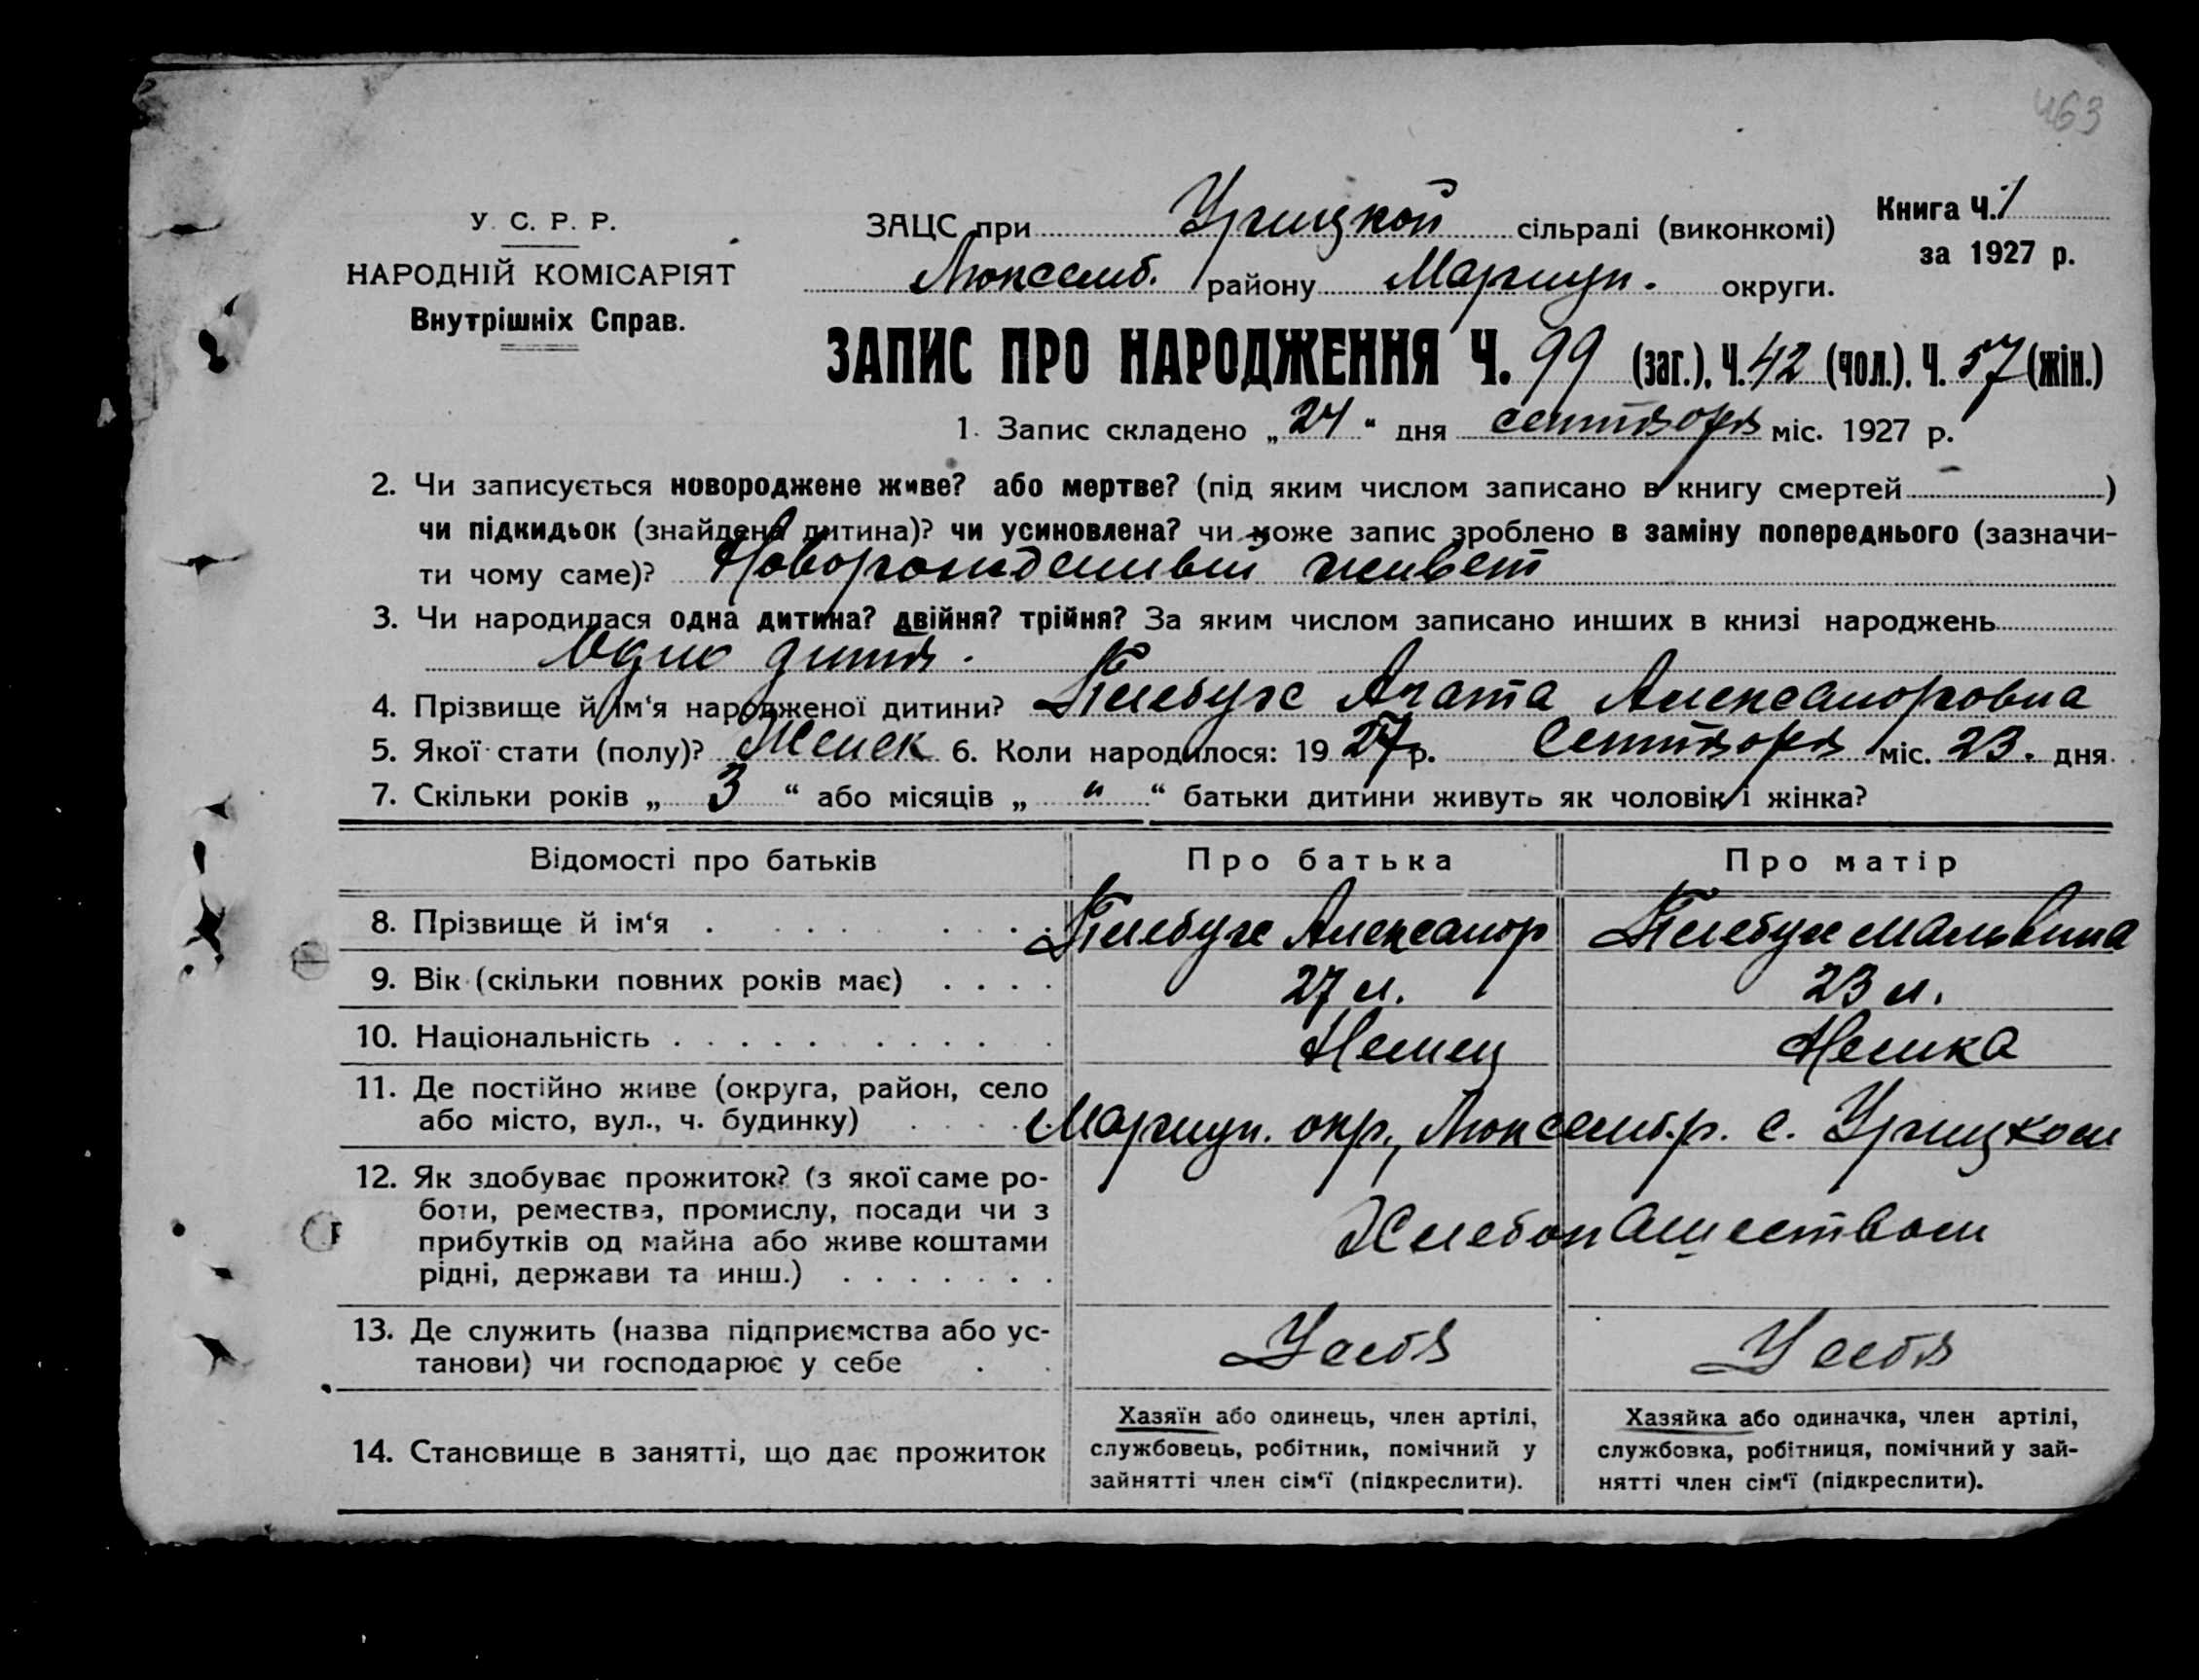 463
У. С. Р. Р.
НАРОДНІЙ КОМІСАРІЯТ
Внутрішніх Справ.
ЗАЦС при Урицкой сільраді (виконкомі)
Люксемб. району Мариуп. округи.
Книга Ч. 1
за 1927 р.
ЗАПИС ПРО НАРОДЖЕННЯ Ч. 99 (заг.), Ч. 42 (чол.). Ч. 57 (жін.)
1. Запис складено „24“ дня сентября міс. 1927 р.
2. Чи записується новороджене живе? або мертве? (під яким числом записано в книгу смертей – )
чи підкидьок (знайдена дитина)? чи усиновлена? чи може запис зроблено в заміну попереднього (зазначи-
ти чому саме)? Новорожденный живет
3. Чи народилася одна дитина? двійня? трійня? За яким числом записано инших в книзі народжень
Одно дитя.
4. Прізвище й ім‘я народженої дитини? Агата Александровна
5. Якої стати (полу)? Женск 6. Коли народилося: 1927 р. Сентября міс. 23. дня
7. Скільки років „ 3 “ або місяців „ " “ батьки дитини живуть як чоловік і жінка?
Відомості про батьків Про батька Про матір
8. Прізвище й ім‘я Александр Мальвина
9. Вік (скільки повних років має) 27 л. 23 л.
10. Національність Немец Немка
11. Де постійно живе (округа, район, село
або місто, вул., ч. будинку) Мариуп. окр., Люксемб. р. с. Урицком
12. Як здобуває прожиток? (з якої саме ро-
боти, ремества, промислу, посади чи з
прибутків од майна або живе коштами
рідні, держави та инш.) Хлебопашеством
13. Де служить (назва підприємства або ус-
танови) чи господарює у себе У себя У себя
14. Становище в занятті, що дає прожиток
Хазяїн або одинець, член артілі,
службовець, робітник, помічний у
зайнятті член сім‘ї (підкреслити).
Хазяйка або одиначка, член артілі,
службовка, робітниця, помічний у зай-
нятті член сім‘ї (підкреслити).